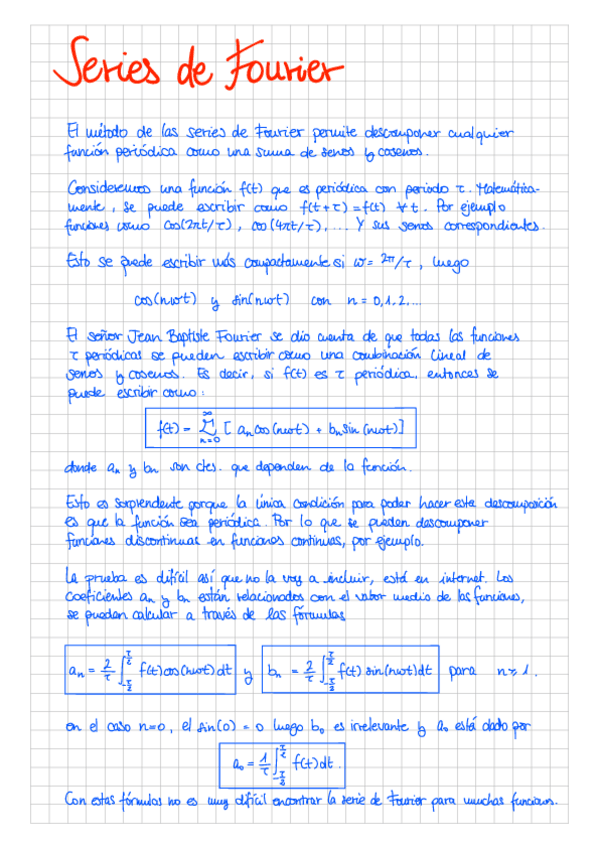 Series de Fourier
El método de las series de Fourier permite descomponer cualquier
función periódica como una suma de senos y cosenos.
Consideremos una función f(t) que es periódica con periodo τ. Matemática-
mente, se puede escribir como f(t+τ)=f(t) ∀t. Por ejemplo
funciones como cos(2πt/τ), cos(4πt/τ), ... Y sus senos correspondientes.
Esto se puede escribir más compactamente si ω= 2π/τ, luego
cos(nωt) y sin(nωt) con n = 0,1,2,...
El señor Jean Baptiste Fourier se dio cuenta de que todas las funciones
τ periódicas se pueden escribir como una combinación lineal de
senos y cosenos. Es decir, si f(t) es τ periódica, entonces se
puede escribir como:
f(t) = ∑_{n=0}^{∞} [ a_n cos(nωt) + b_n sin(nωt)]
donde a_n y b_n son ctes. que dependen de la función.
Esto es sorprendente porque la única condición para poder hacer esta descomposición
es que la función sea periódica. Por lo que se pueden descomponer
funciones discontinuas en funciones continuas, por ejemplo.
La prueba es difícil así que no la voy a incluir, está en internet. Los
coeficientes a_n y b_n están relacionados con el valor medio de las funciones,
se pueden calcular a través de las fórmulas
a_n = 2/τ ∫_{-τ/2}^{τ/2} f(t)cos(nωt)dt y b_n = 2/τ ∫_{-τ/2}^{τ/2} f(t) sin(nωt)dt para n≥1.
en el caso n=0, el sin(0) = 0 luego b_0 es irrelevante y a_0 está dado por
a_0 = 1/τ ∫_{-τ/2}^{τ/2} f(t)dt.
Con estas fórmulas no es muy difícil encontrar la serie de Fourier para muchas funciones.